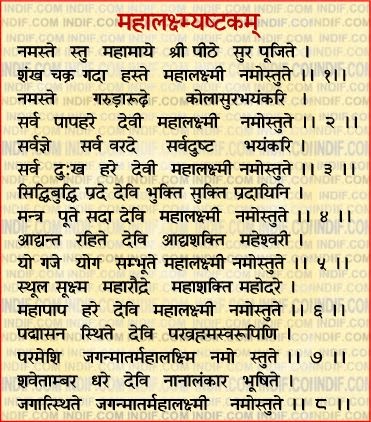 महालक्ष्म्यष्टकम्
नमस्ते स्तु महामाये श्री पीठे सुर पूजिते ।
शंख चक्र गदा हस्ते महालक्ष्मी नमोस्तुते ।। १।।
नमस्ते गरुड़ारूढ़े कोलासुरभयंकरि ।
सर्व पापहरे देवी महालक्ष्मी नमोस्तुते ।। २ ।।
सर्वज्ञे सर्व वरदे सर्वदुष्ट भयंकरि ।
सर्व दुःख हरे देवी महालक्ष्मी नमोस्तुते ।। ३ ।।
सिद्धिबुद्धि प्रदे देवि भुक्ति सुक्ति प्रदायिनि ।
मन्त्र पूते सदा देवि महालक्ष्मी नमोस्तुते ।। ४ ।।
आद्यन्त रहिते देवि आद्यशक्ति महेश्वरी ।
यो गजे योग सम्भूते महालक्ष्मी नमोस्तुते ।। ५ ।।
स्थूल सूक्ष्म महारौद्रे महाशक्ति महोदरे ।
महापाप हरे देवि महालक्ष्मी नमोस्तुते ।। ६ ।।
पद्मासन स्थिते देवि परब्रह्मस्वरूपिणि ।
परमेशि जगन्मातर्महालक्ष्मि नमो स्तुते ।। ७ ।।
शवेताम्बर धरे देवि नानालंकार भूषिते ।
जगात्स्थिते जगन्मातर्महालक्ष्मी नमोस्तुते ।। ८ ।।
INDIF.COM